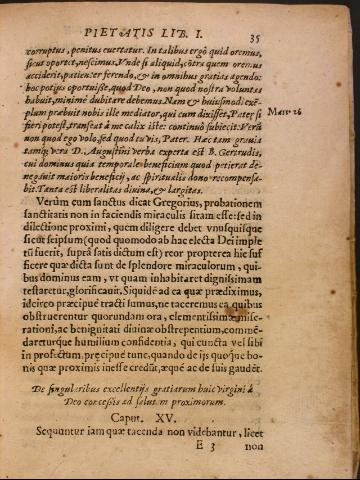 PIETATIS LIB. I. 35
corruptus, penitus euertatur. In talibus ergò quid oremus,
sicut oportet, nescimus. Vnde si aliquid, cõtra quem oremus
acciderit, patienter ferendo, & in omnibus gratias agendo:
hoc potius oportuisse, quod Deo, non quod nostra voluntas
habuit, minimè dubitare debemus. Nam & huiusmodi exẽ-
plum præbuit nobis ille mediator, qui cum dixisset, Pater si
fieri potest, transeat à me calix iste: continuò subiecit. Verũ
non quod ego volo, sed quod tu vis, Pater. Hæc tam grauia
tamq; vera D. Augustini verba experta est B. Gertrudis,
cui dominus quia temporale beneficium quod petierat de-
negauit maioris beneficij, ac spiritualis dono recompensa-
bit. Tanta est liberalitas diuina, & largitas.
Matt 26
Verùm cum sanctus dicat Gregorius, probationem
sanctitatis non in faciendis miraculis sitam esse: sed in
dilectione proximi, quem diligere debet vnusquisque
sicut seipsum (quod quomodo ab hac electa Dei imple
tũ fuerit, suprà satis dictum est) reor propterea hîc suf
ficere quæ dicta sunt de splendore miraculorum, qui-
bus dominus eam, vt quam inhabitaret dignissimam
testaretur, glorificauit. Siquidẽ ad ea quæ prædiximus,
idcirco præcipuè tracti sumus, ne taceremus ea quibus
obstruerentur quorundam ora, elementissimæ mise-
rationi, ac benignitati diuinæ obstrepentium, commẽ-
dareturque humilium confidentia, qui cuncta vel sibi
in profectum, prẹcipuè tunc, quando de ijs quoq́ue bo-
nis quæ proximis inesse credũt, æquè ac de suis gaudẽt.
De singularibus excellentijs gratiarum huic virgini à
Deo concessis ad salutem proximorum.
Caput. XV.
Sequuntur iam quæ tacenda non videbantur, licet
E 3 non